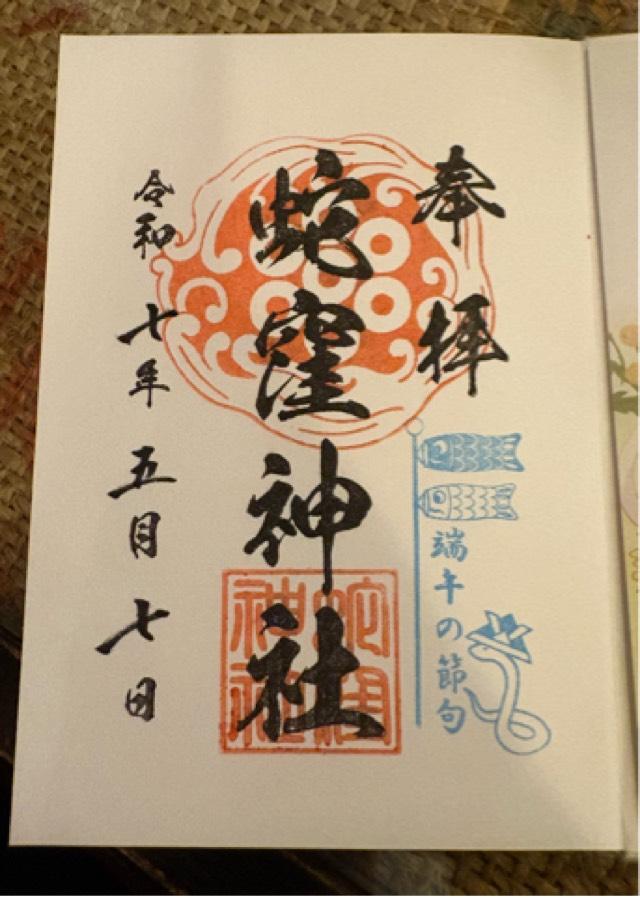 奉拝
端午の節句
蛇窪神社
蛇窪神社
令和七年五月七日